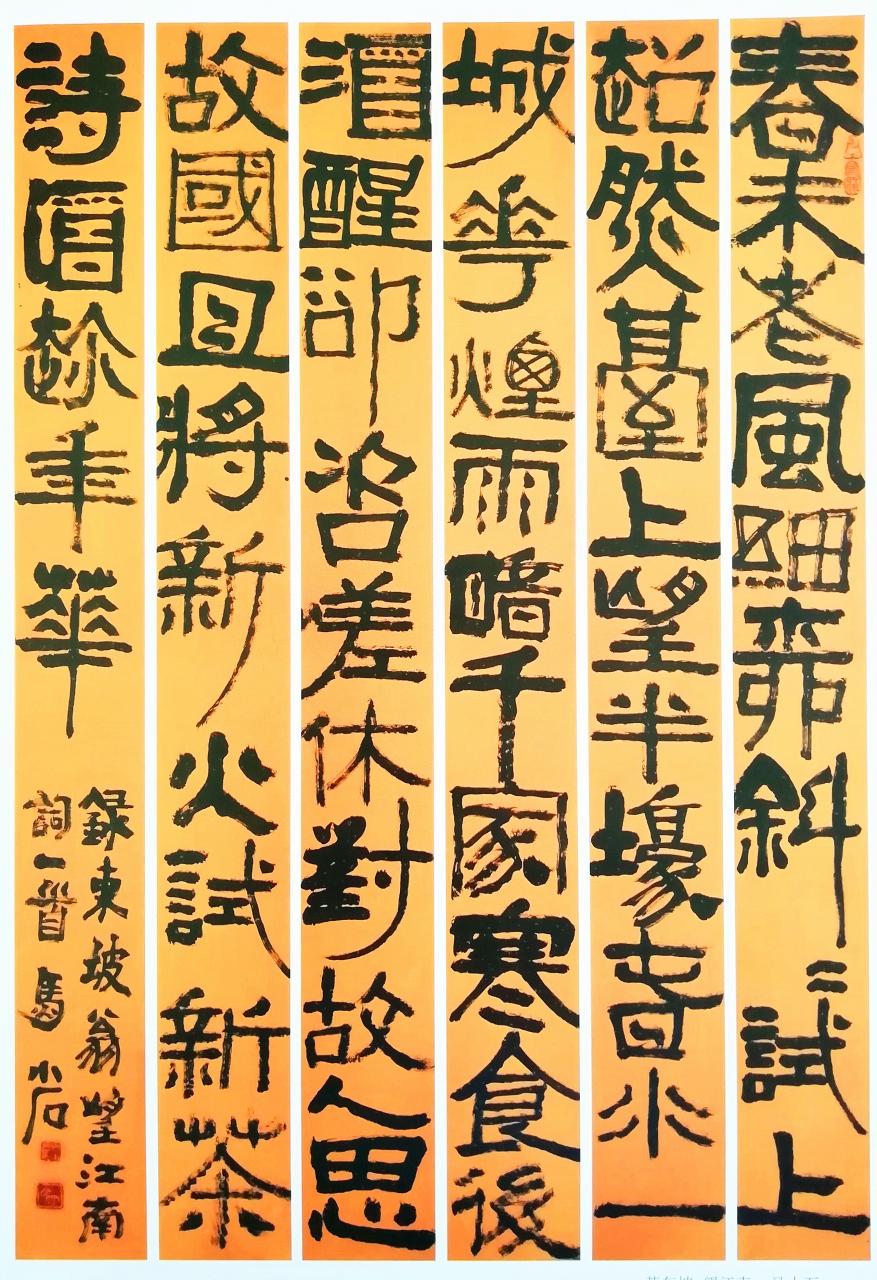 春未老風細柳斜〻試上
超然臺上望半壕春水一
城花煙雨暗千家寒食後
酒醒卻咨嗟休對故人思
故國且將新火試新茶
詩酒趁年華
録東坡翁望江南
詞一首馬小石